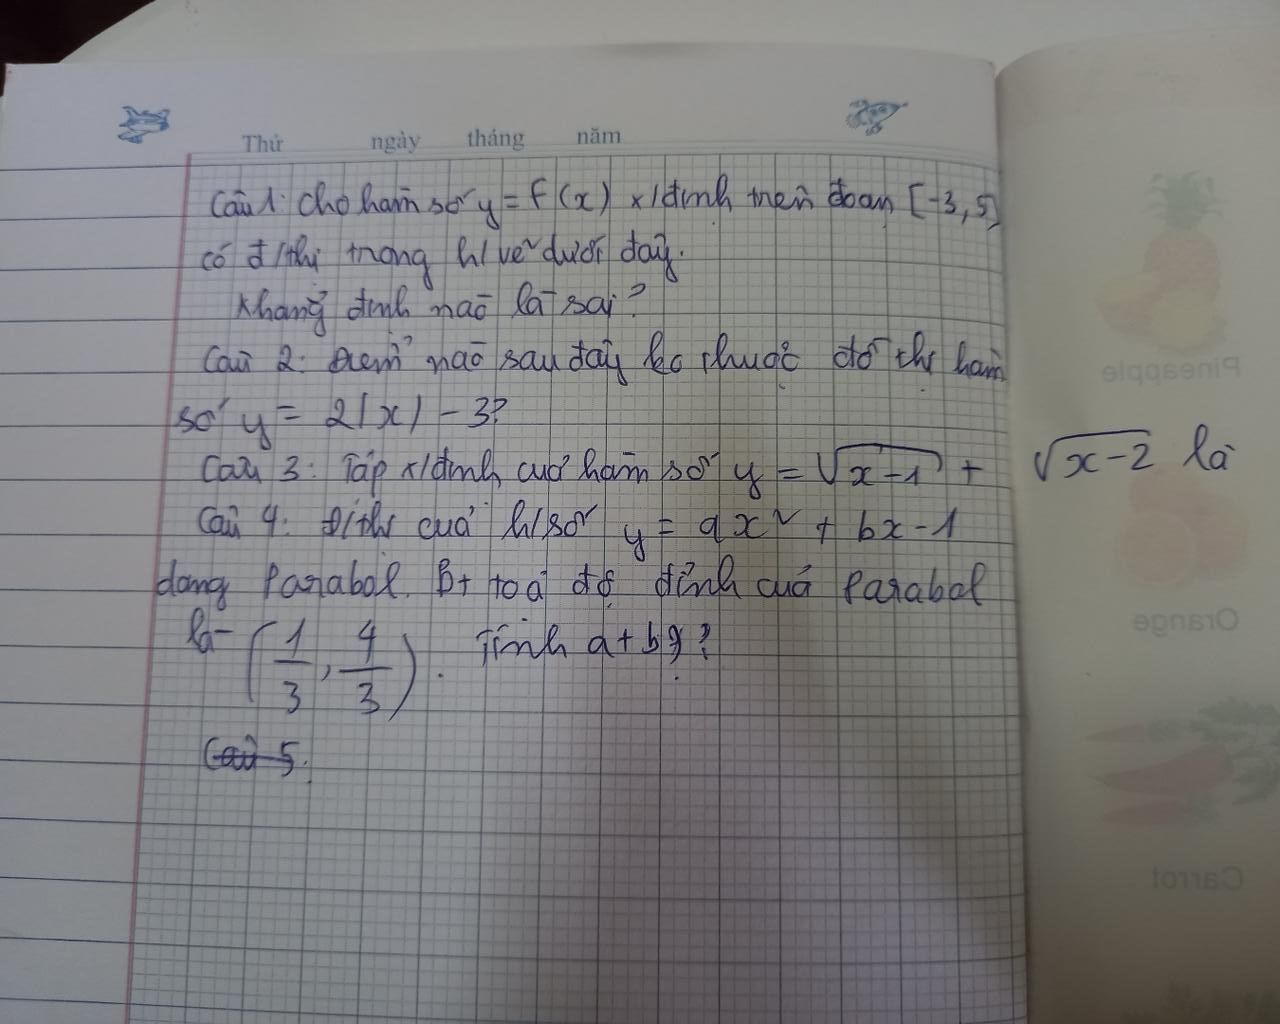 Thứ ngày tháng năm
Câu 1: Cho hàm số y = f(x) x/định trên đoạn [-3, 5]
có đ/thị trong h/vẽ dưới đây.
Khẳng định nào là sai?
Câu 2: Điểm nào sau đây ko thuộc đồ thị hàm
số y = 2|x| - 3?
Câu 3: Tập x/định của hàm số y = √(x-1) + √(x-2) là
Câu 4: Đ/thị của h/số y = ax² + bx - 1
dạng Parabol. Bt toạ độ đỉnh của Parabol
là (1/3, 4/3). Tính a+b?
Câu 5.
Pineapple
Orange
Carrot